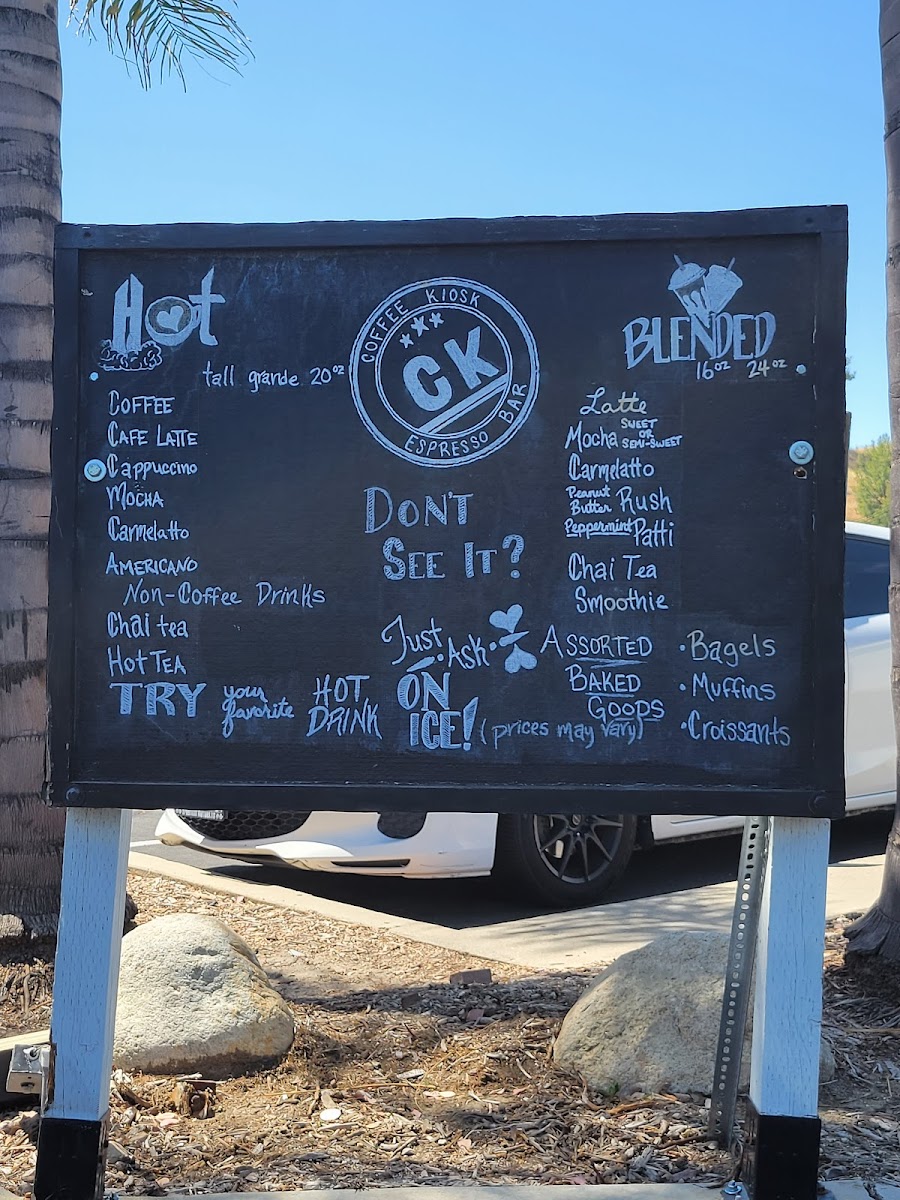 Hot
tall grande 20oz
COFFEE
CAFE LATTE
Cappuccino
MOCHA
Carmelatto
AMERICANO
Non-Coffee Drinks
Chai tea
HOT TEA
TRY your favorite HOT DRINK ON ICE! (prices may vary)
COFFEE KIOSK
CK
ESPRESSO BAR
DON'T
SEE IT?
Just
·Ask·
BLENDED
16oz 24oz
Latte
Mocha SWEET OR SEMI-SWEET
Carmelatto
Peanut Butter Rush
Peppermint Patti
Chai Tea
Smoothie
ASSORTED
BAKED
GOODS
·Bagels
·Muffins
·Croissants